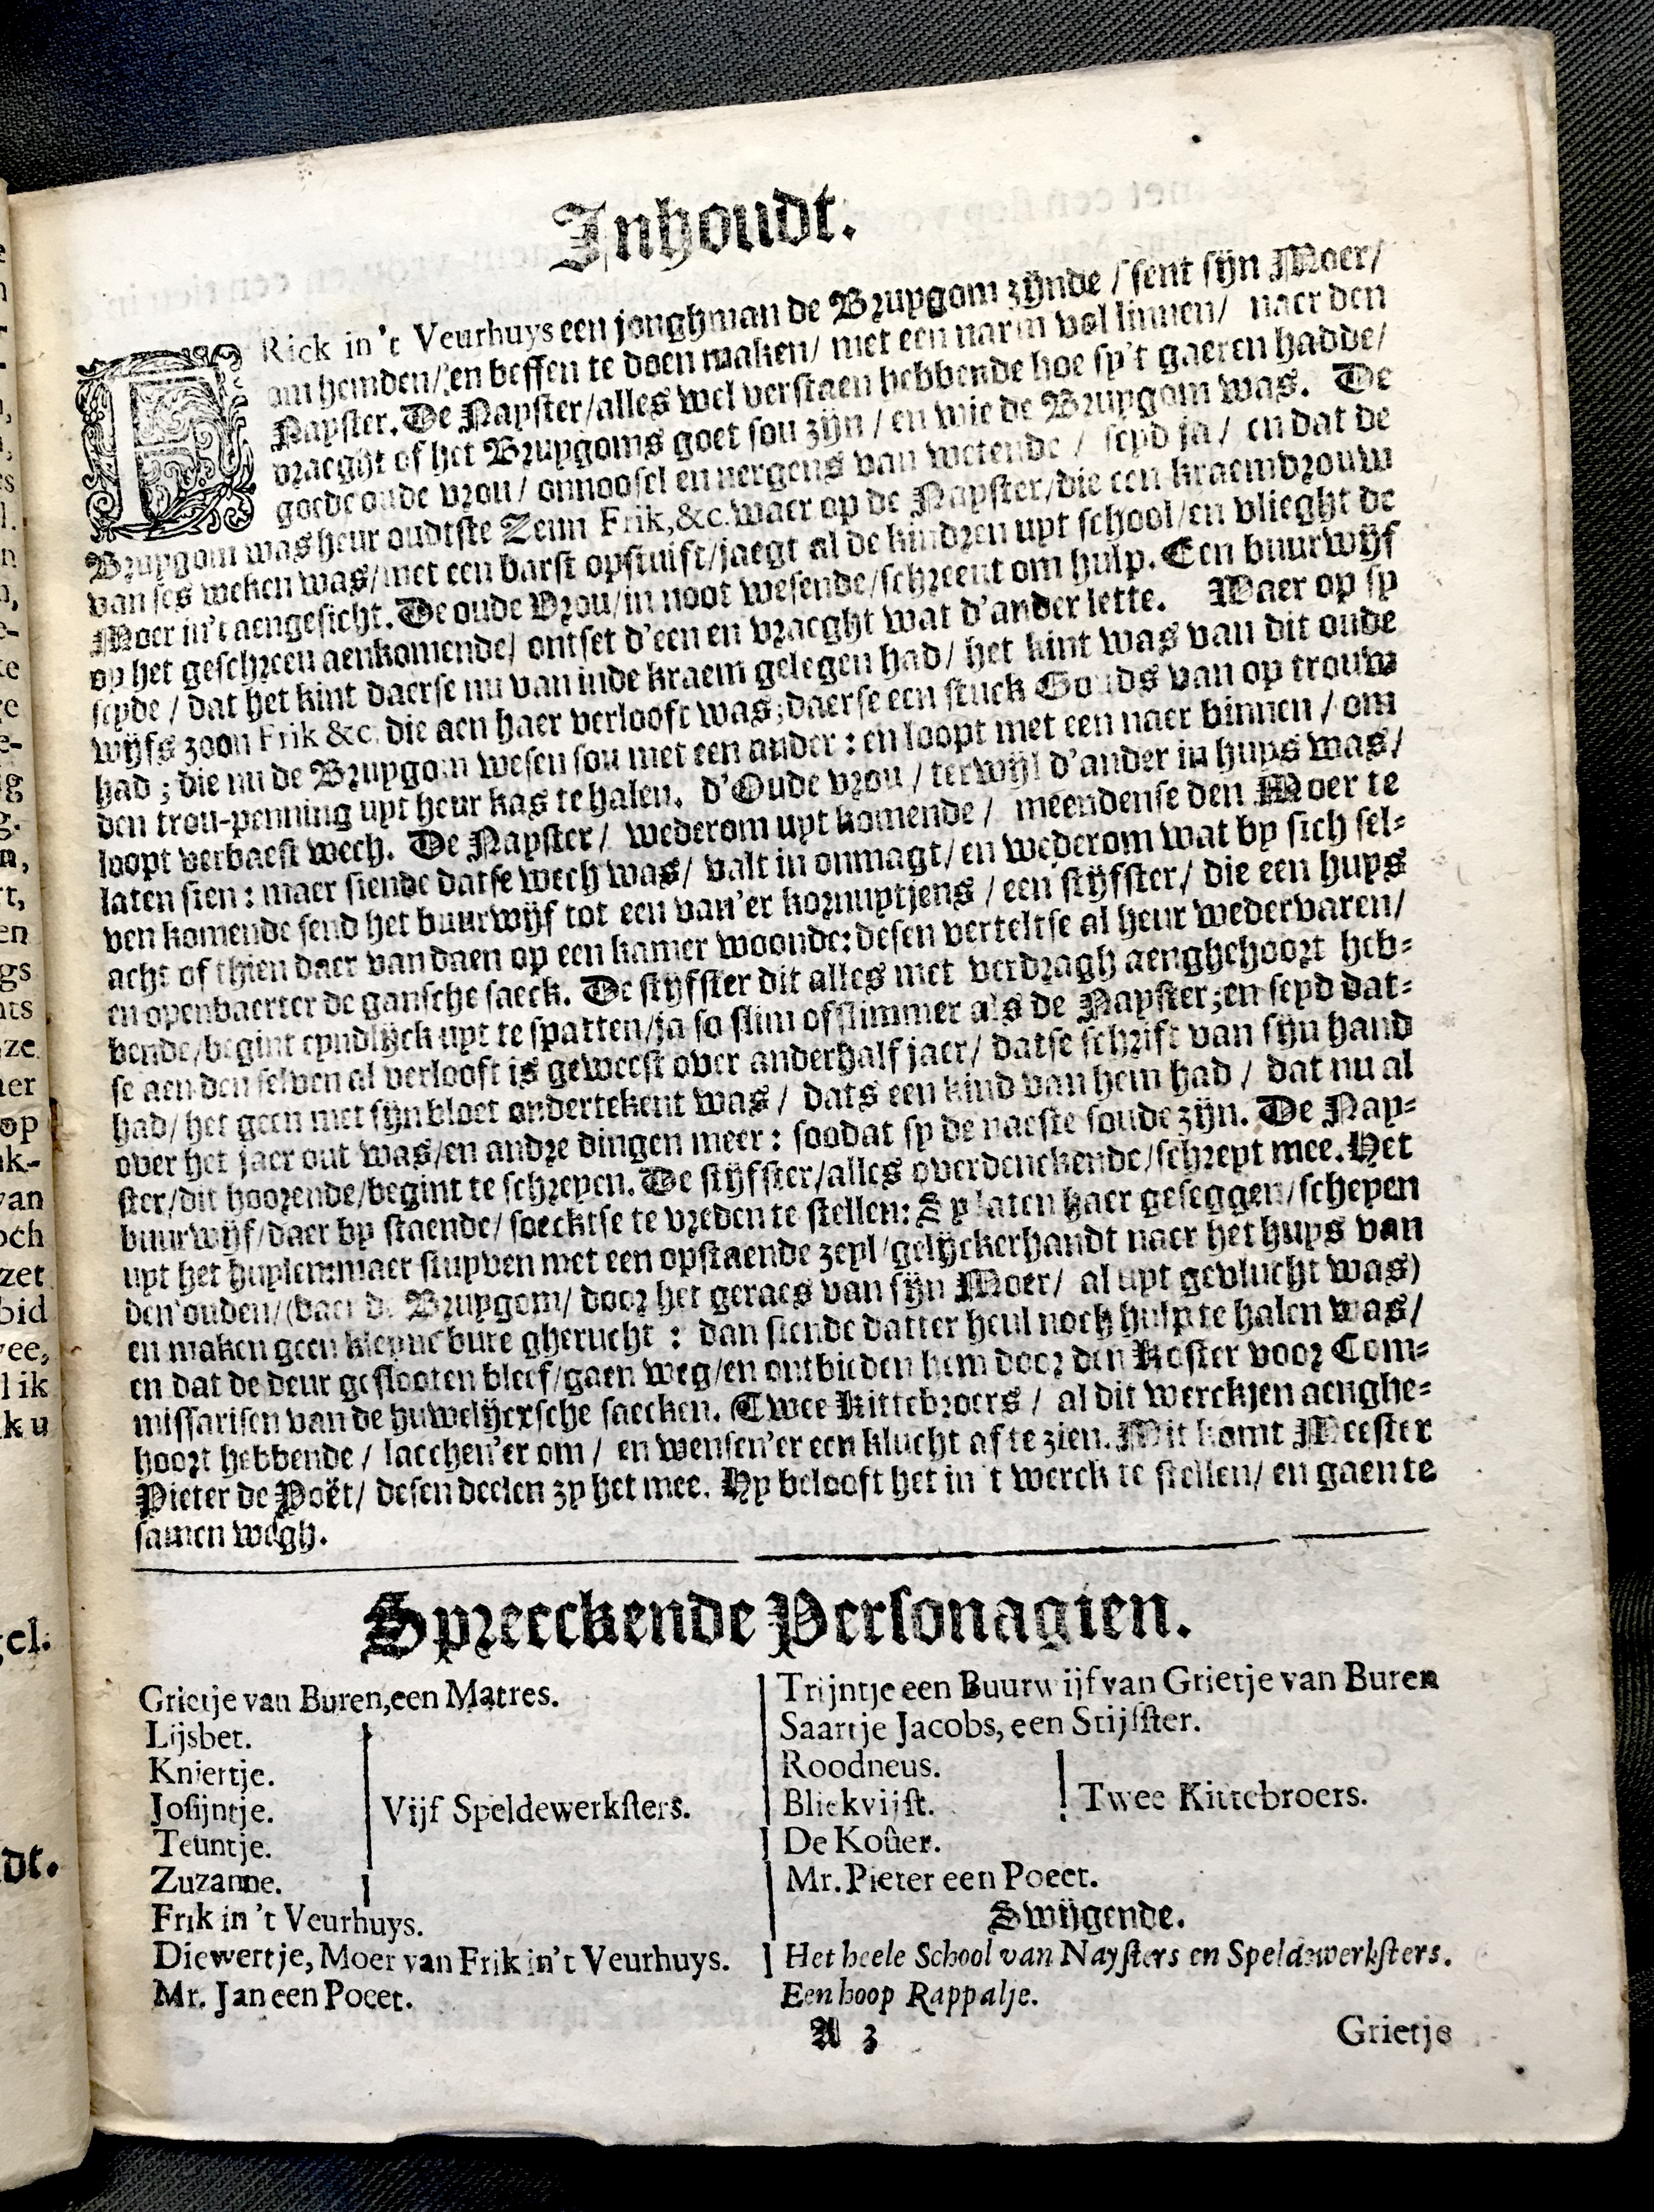 Inhoudt.
FRick in 't Veurhuys een jonghman de Bruygom zijnde / sent sijn Moer /
om hemden / en beffen te doen maken / met een narm vol linnen / naer den
Nayster. De Nayster / alles wel verstaen hebbende hoe sy't gaeren hadde /
vraeght of het Bruygoms goet sou zijn / en wie de Bruygom was. De
goede oude vrou / onnoosel en nergens van wetende / seyd ja / en dat de
Bruygom was heur oudtste Zeun Frik, &c. waer op de Nayster / die een kraemvrouw
van ses weken was / met een barst opstuift / jaegt al de kindren uyt school / en vlieght de
Moer in't aengesicht. De oude Vrou / in noot wesende / schreeut om hulp. Een buurwijf
op het geschreeu aenkomende / ontset d'een en vraeght wat d'ander lette. Waer op sy
seyde / dat het kint daerse nu van inde kraem gelegen had / het kint was van dit oude
wijfs zoon Frik &c. die aen haer verlooft was; daerse een stuck Gouds van op trouw
had; die nu de Bruygom wesen sou met een ander: en loopt met een naer binnen / om
den trou-penning uyt heur kas te halen. d'Oude vrou / terwijl d'ander in huys was /
loopt verbaest wech. De Nayster / wederom uyt komende / meendense den Moer te
laten sien: maer siende datse wech was / valt in onmagt / en wederom wat by sich sel-
ven komende send het buurwijf tot een van'er kornuytjens / een stijfster / die een huys
acht of thien daer van daen op een kamer woonde: desen verteltse al heur wedervaren /
en openbaerter de gansche saeck. De stijfster dit alles met verdragh aenghehoort heb-
bende / begint eyndlijck uyt te spatten / ja so slim of slimmer als de Nayster; en seyd dat-
se aen den selven al verlooft is geweest over anderhalf jaer / datse schrift van sijn hand
had / het geen met sijn bloet ondertekent was / dats een kind van hem had / dat nu al
over het jaer out was / en andre dingen meer: soodat sy de naeste soude zijn. De Nay-
ster / dit hoorende / begint te schreyen. De stijfster / alles overdenckende / schreyt mee. Het
buurwijf / daer by staende / soecktse te vreden te stellen: Sy laten haer geseggen / scheyen
uyt het huylen: maer stuyven met een opstaende zeyl / gelijckerhandt naer het huys van
den ouden / (daer de Bruygom / door het geraes van sijn Moer / al uyt gevlucht was)
en maken geen kleyne bure gherucht: dan siende datter heul noch hulp te halen was /
en dat de deur geslooten bleef / gaen weg / en ontbieden hem door den Koster voor Com-
missarisen van de huwelijcxsche saecken. Twee Kittebroers / al dit werckjen aenghe-
hoort hebbende / lacchen'er om / en wensen'er een klucht af te zien. Mit komt Meester
Pieter de Poët / desen deelen zy het mee. Hy belooft het in 't werck te stellen / en gaen te
samen wegh.
Spreeckende Personagien.
Grietje van Buren, een Matres.
Lijsbet.
Kniertje.
Josijntje.
Teuntje.
Zuzanne.
Vijf Speldewerksters.
Frik in 't Veurhuys.
Diewertje, Moer van Frik in't Veurhuys.
Mr. Jan een Poeet.
Trijntje een Buurwijf van Grietje van Buren
Saartje Jacobs, een Stijfster.
Roodneus.
Bliekvijst.
Twee Kittebroers.
De Koûer.
Mr. Pieter een Poeet.
Swijgende.
Het heele School van Naysters en Speldewerksters.
Een hoop Rappalje.
A 3
Grietje